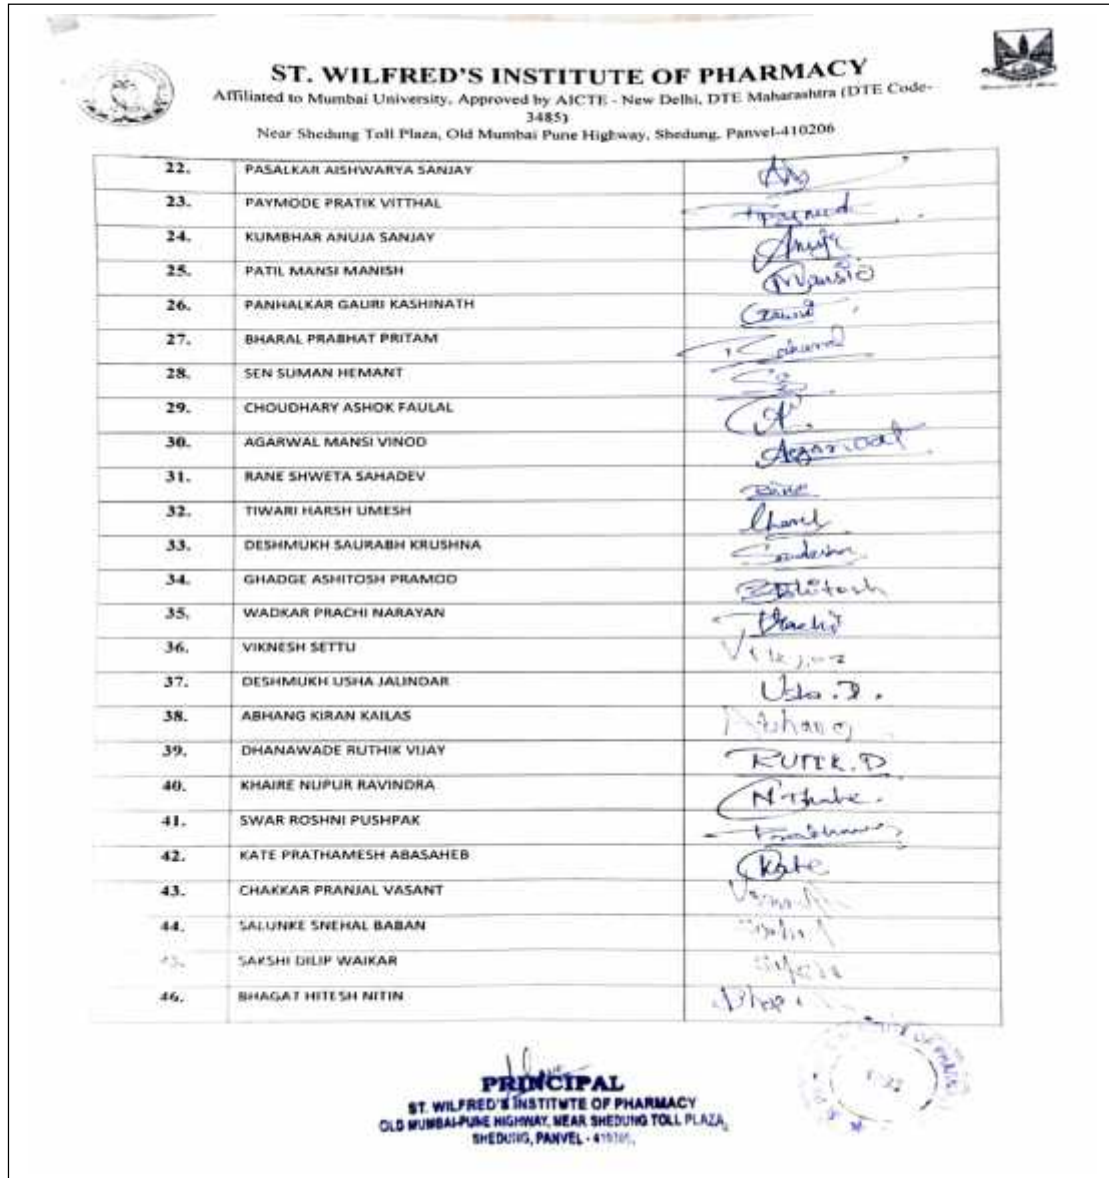 ST. WILFRED'S INSTITUTE OF PHARMACY
Affiliated to Mumbai University, Approved by AICTE - New Delhi, DTE Maharashtra (DTE Code-
3485)
Near Shedung Toll Plaza, Old Mumbai Pune Highway, Shedung, Panvel-410206
22. PASALKAR AISHWARYA SANJAY
23. PAYMODE PRATIK VITTHAL
24. KUMBHAR ANUJA SANJAY Anuja
25. PATIL MANSI MANISH Mansi
26. PANHALKAR GAURI KASHINATH Gauri
27. BHARAL PRABHAT PRITAM
28. SEN SUMAN HEMANT
29. CHOUDHARY ASHOK FAULAL
30. AGARWAL MANSI VINOD Agarwal
31. RANE SHWETA SAHADEV
32. TIWARI HARSH UMESH
33. DESHMUKH SAURABH KRUSHNA
34. GHADGE ASHITOSH PRAMOD Ashitosh
35. WADKAR PRACHI NARAYAN Prachi
36. VIKNESH SETTU
37. DESHMUKH USHA JALINDAR Usha.D.
38. ABHANG KIRAN KAILAS Abhang
39. DHANAWADE RUTHIK VIJAY RUTIK.D
40. KHAIRE NUPUR RAVINDRA
41. SWAR ROSHNI PUSHPAK
42. KATE PRATHAMESH ABASAHEB Kate
43. CHAKKAR PRANJAL VASANT
44. SALUNKE SNEHAL BABAN
45. SAKSHI DILIP WAIKAR
46. BHAGAT HITESH NITIN
PRINCIPAL
ST. WILFRED'S INSTITUTE OF PHARMACY
OLD MUMBAI-PUNE HIGHWAY, NEAR SHEDUNG TOLL PLAZA,
SHEDUNG, PANVEL - 410206.